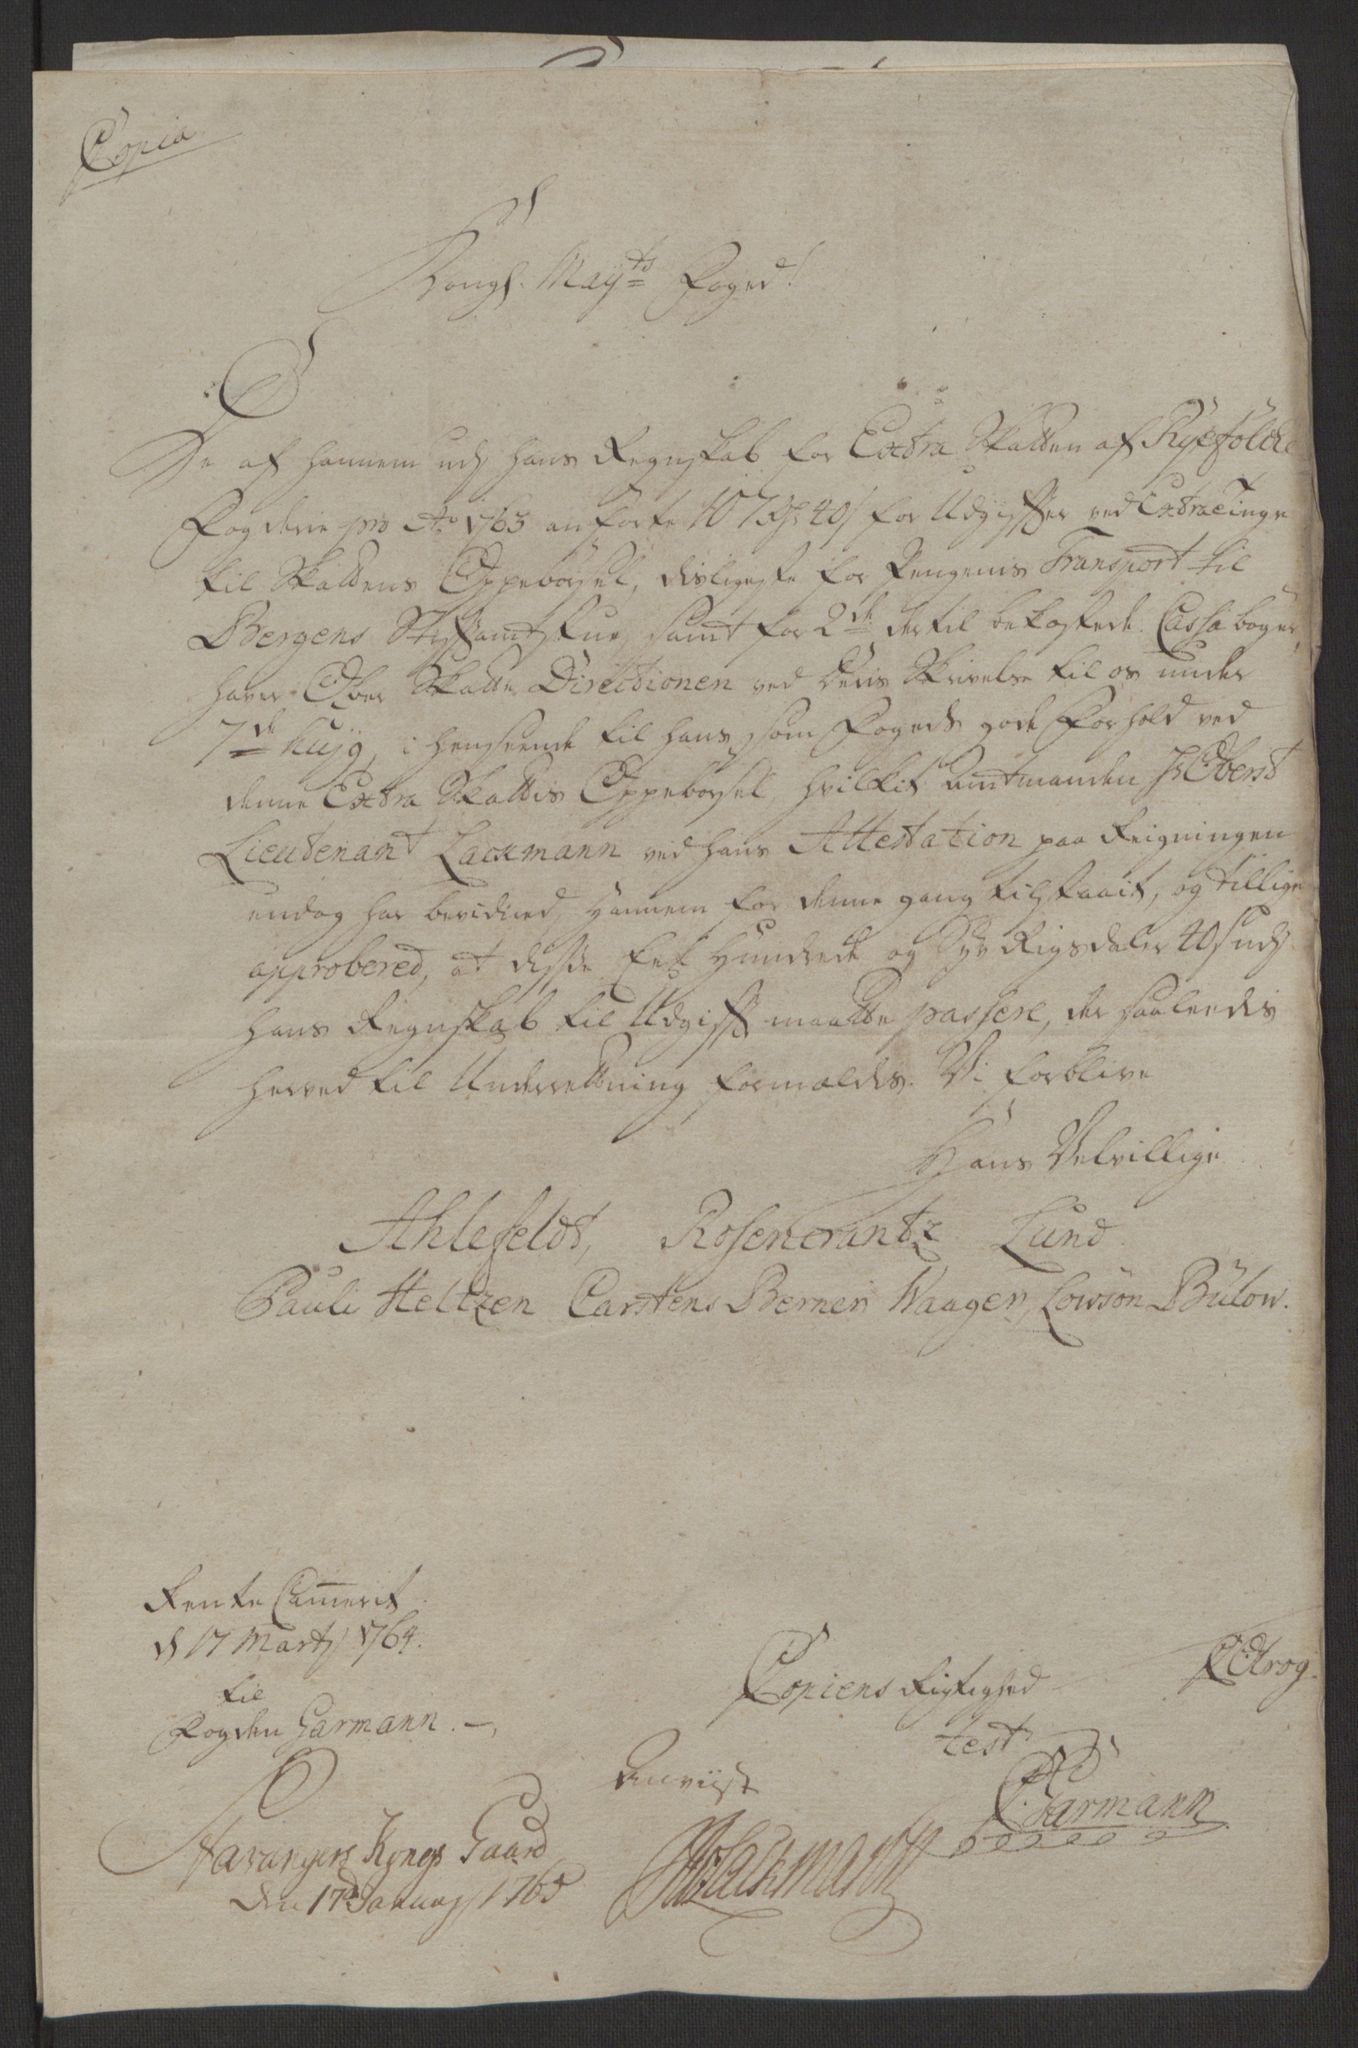 Copia
Kongl. Mayts Foged!
De af hannem udj hans Regnskab for Extra Skatten af Ryefölcke
Fogderie pro Ao 1763 anførte 107 Rdr 40 s for Udgifter ved Extra Tinge
til Skattens Oppebørsel, desligeste for Pengenis Transport til
Bergens Stiftamtstue, samt for 2de dertil bekostede Cassa bøger,
haver Ober Skatte Directionen ved Deris Skrivelse til os under
7de hujg, i henseende til hans som Fogeds gode Forhold ved
denne Extra Skattis Oppebørsel, hvilket Amtmanden Hr Oberst
Lieutenant Lackmann ved hans Attestation paa Reigningen
endog har bevidned, hannem for denne gang tilstaait, og tillige
approbered, at disse Eet Hundrede og Syv Rigsdaler 40 s udj
hans Regnskab til Udgift maatte passere, der saaleedis
herved til Underretning formældes. Vi forblive
Hans Velvillige
Ahlefeldt, Rosencrantz Lund
Pauli Heltzen Carstens Berner Waager, Lowson Bülow.
Rente Cammerit
d 17 Martj 1764.
til
Fogden Garmann.
Copiens Rigtighed
test
Garmann
Anviist
Stavangers Kongs Gaard
den 17d Januarj 1765
Lackmann